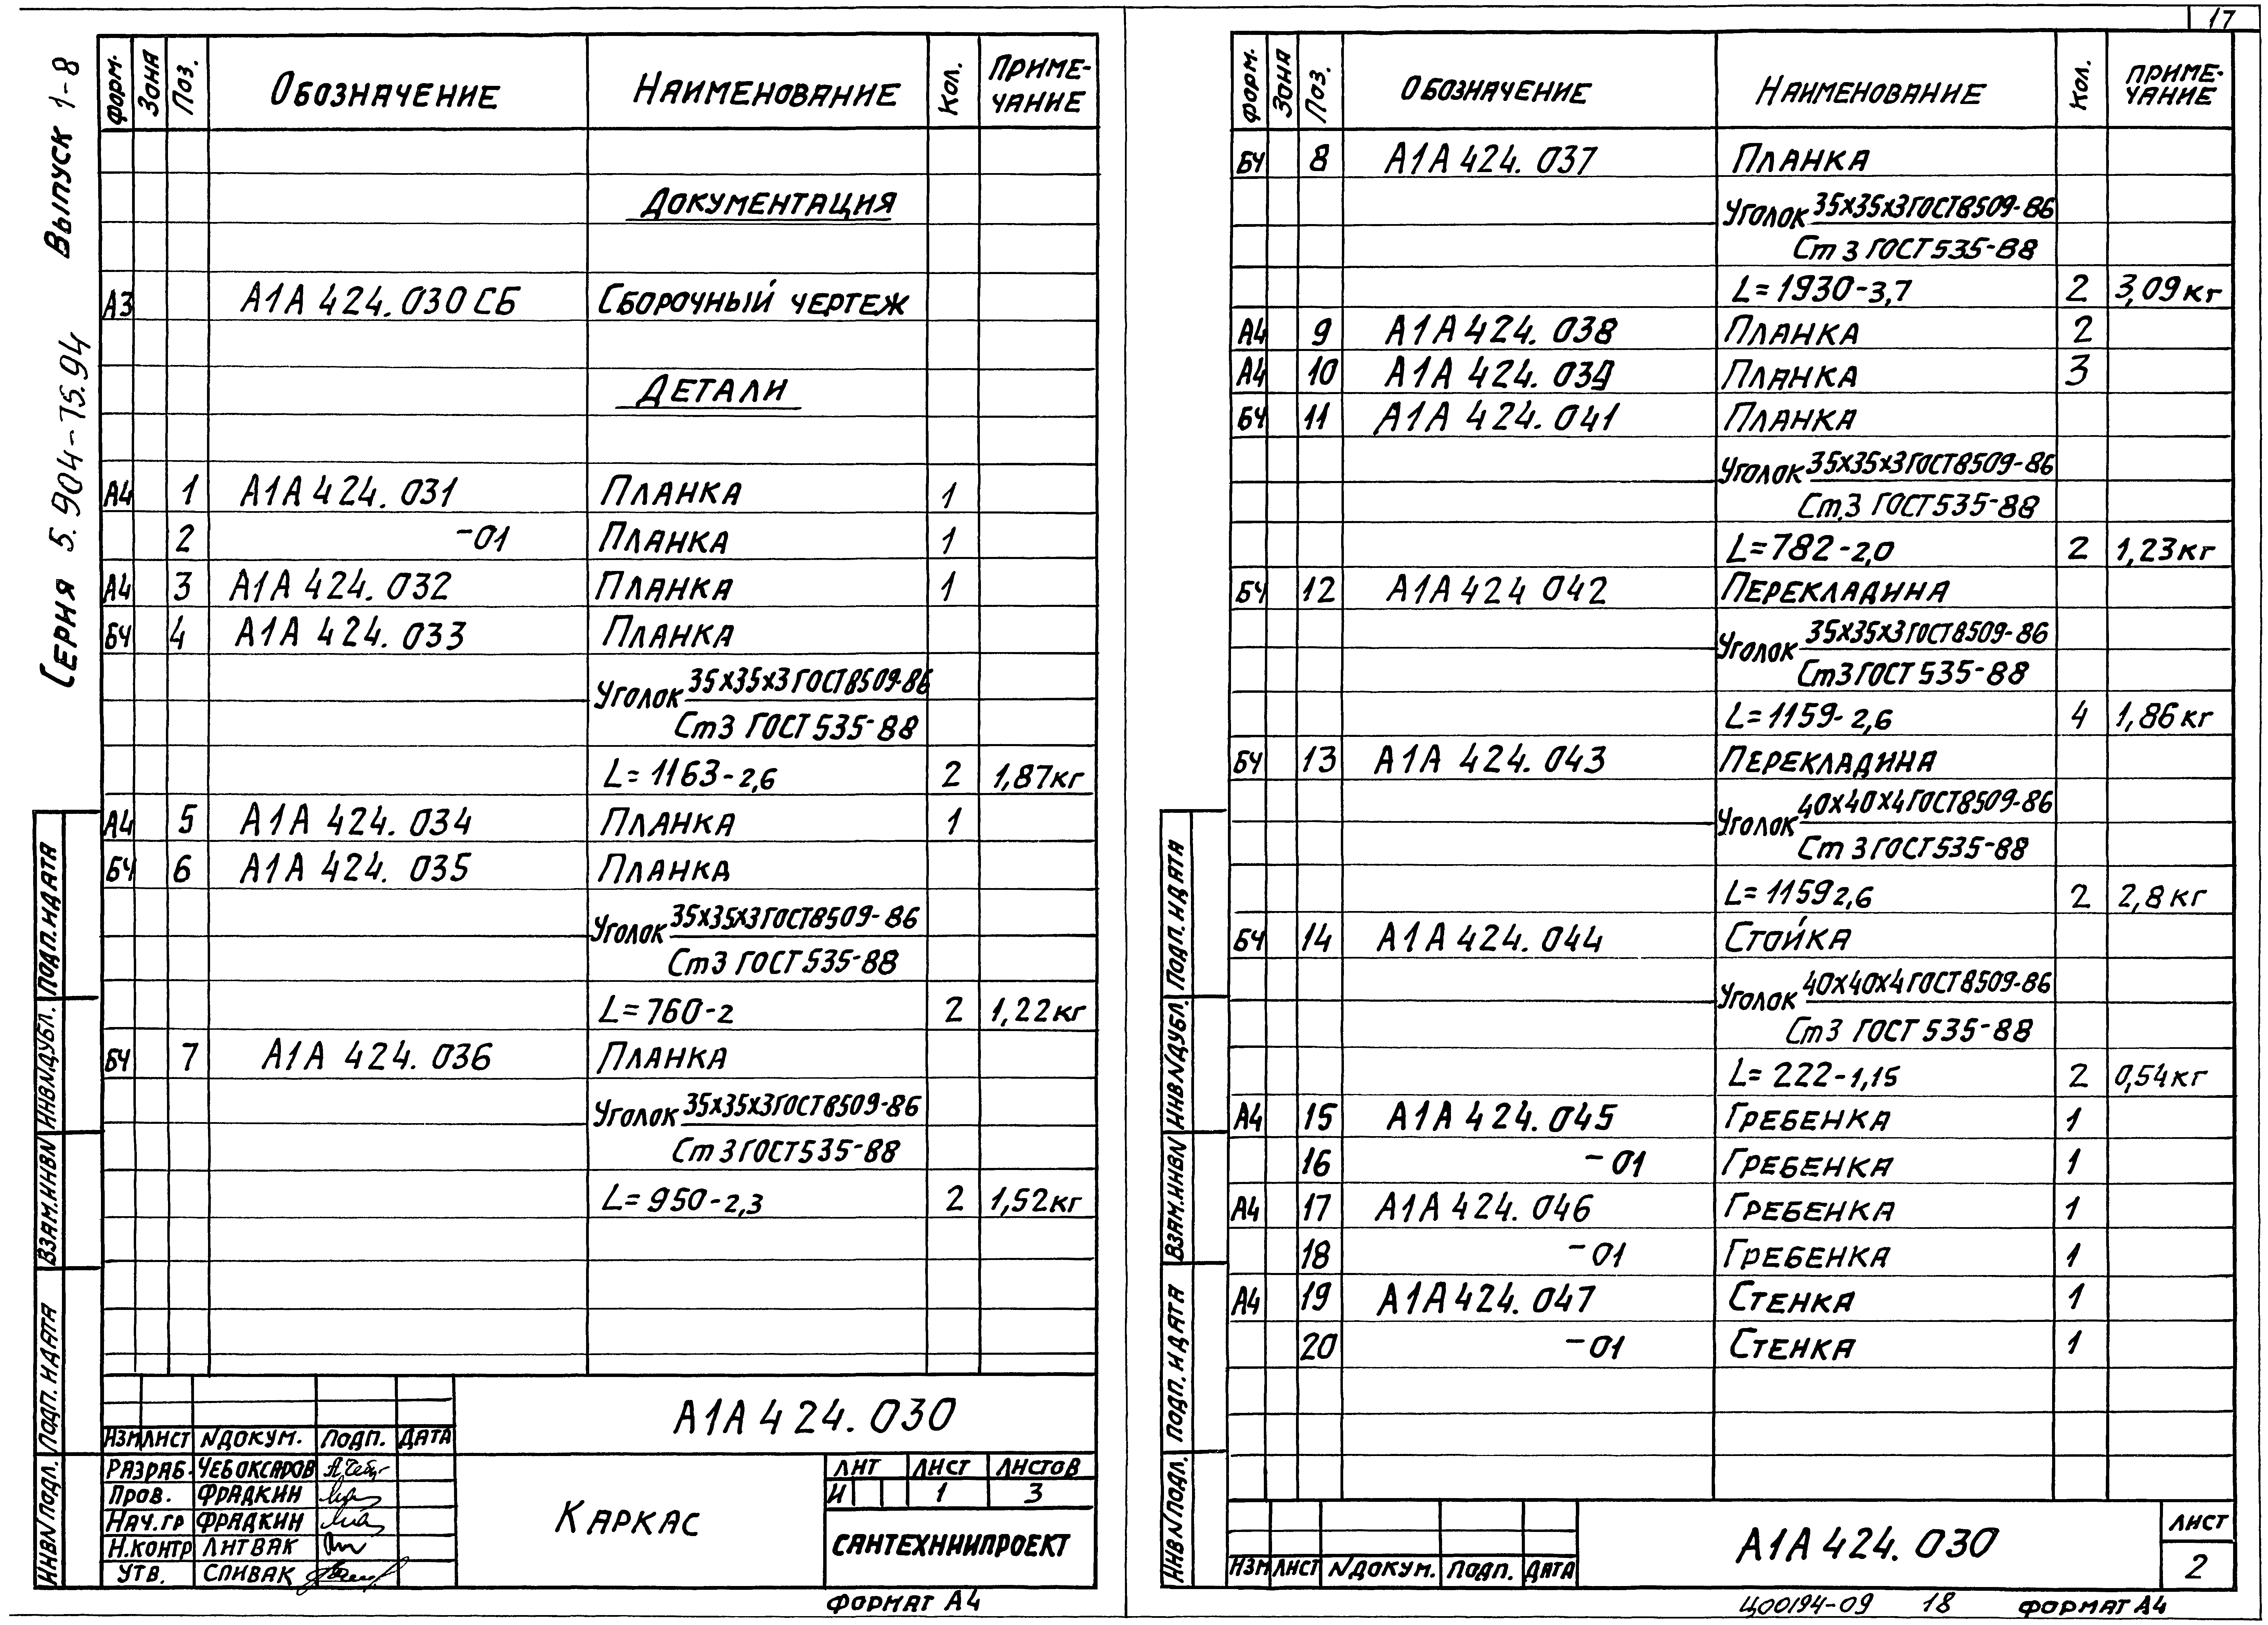 17
Серия 5.904-75.94 Выпуск 1-8
Форм. Зона Поз. Обозначение Наименование Кол. Приме-
чание
Документация
А3 А1А 424.030 СБ Сборочный чертеж
Детали
А4 1 А1А 424.031 Планка 1
2 -01 Планка 1
А4 3 А1А 424.032 Планка 1
БЧ 4 А1А 424.033 Планка
Уголок 35х35х3 ГОСТ 8509-86
Ст3 ГОСТ 535-88
L=1163-2,6 2 1,87кг
А4 5 А1А 424.034 Планка 1
БЧ 6 А1А 424.035 Планка
Уголок 35х35х3 ГОСТ 8509-86
Ст3 ГОСТ 535-88
L=760-2 2 1,22кг
БЧ 7 А1А 424.036 Планка
Уголок 35х35х3 ГОСТ 8509-86
Ст3 ГОСТ 535-88
L=950-2,3 2 1,52кг
Подп. и дата
Инв N дубл.
Взам. инв N
Подп. и дата
Инв N подл.
А1А 424.030
Изм Лист N докум. Подп. Дата
Разраб. Чебоксаров
Пров. Фрадкин
Нач.гр Фрадкин
Н.контр Литвак
Утв. Спивак
Каркас
Лит Лист Листов
И 1 3
Сантехниипроект
Формат А4
Форм. Зона Поз. Обозначение Наименование Кол. Приме-
чание
БЧ 8 А1А 424.037 Планка
Уголок 35х35х3 ГОСТ 8509-86
Ст 3 ГОСТ 535-88
L=1930-3,7 2 3,09кг
А4 9 А1А 424.038 Планка 2
А4 10 А1А 424.039 Планка 3
БЧ 11 А1А 424.041 Планка
Уголок 35х35х3 ГОСТ 8509-86
Ст.3 ГОСТ 535-88
L=782-2,0 2 1,23кг
БЧ 12 А1А 424 042 Перекладина
Уголок 35х35х3 ГОСТ 8509-86
Ст3 ГОСТ 535-88
L=1159-2,6 4 1,86кг
БЧ 13 А1А 424.043 Перекладина
Уголок 40х40х4 ГОСТ 8509-86
Ст 3 ГОСТ 535-88
L=1159 2,6 2 2,8кг
БЧ 14 А1А 424.044 Стойка
Уголок 40х40х4 ГОСТ 8509-86
Ст3 ГОСТ 535-88
L=222-1,15 2 0,54кг
А4 15 А1А 424.045 Гребенка 1
16 -01 Гребенка 1
А4 17 А1А 424.046 Гребенка 1
18 -01 Гребенка 1
А4 19 А1А 424.047 Стенка 1
20 -01 Стенка 1
Подп. и дата
Инв N дубл.
Взам. инв N
Подп. и дата
Инв N подл.
Изм Лист N докум. Подп. Дата
А1А 424.030
Лист
2
Ц00194-09 18 Формат А4